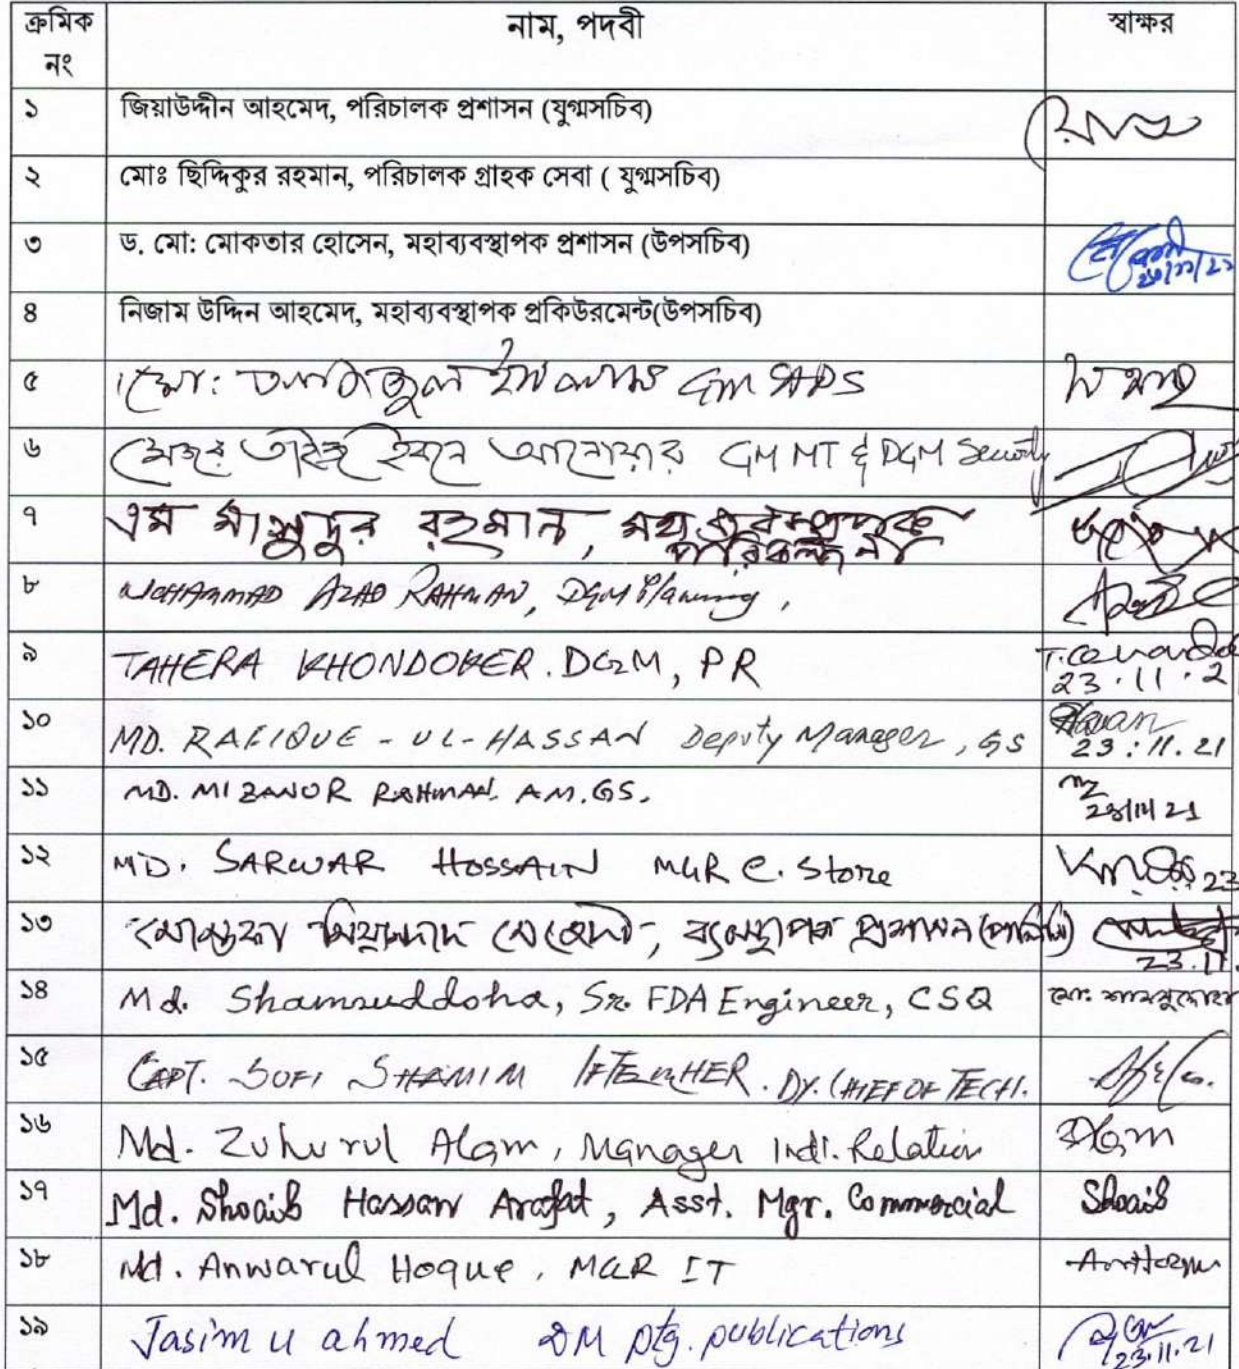 ক্রমিক নং নাম, পদবী স্বাক্ষর
১ জিয়াউদ্দীন আহমেদ, পরিচালক প্রশাসন (যুগ্মসচিব)
২ মোঃ ছিদ্দিকুর রহমান, পরিচালক গ্রাহক সেবা ( যুগ্মসচিব)
৩ ড. মো: মোকতার হোসেন, মহাব্যবস্থাপক প্রশাসন (উপসচিব)
৪ নিজাম উদ্দিন আহমেদ, মহাব্যবস্থাপক প্রকিউরমেন্ট(উপসচিব)
৫ মো: GM
৬ মেজর তাইজ ইবনে আনোয়ার GM MT & DGM Security
৭ এম মাসুদুর রহমান, মহাব্যবস্থাপক
পরিকল্পনা
৮ MOHAMMAD AZAD RAHMAN, DGM Planning,
৯ TAHERA KHONDOKER. DGM, PR
23.11.2
১০ MD. RAFIQUE-UL-HASSAN Deputy Manager, GS
23.11.21
১১ MD. MIZANUR RAHMAN. A.M. GS.
১২ MD. SARWAR HOSSAIN MGR C. Store 23
১৩ ব্যবস্থাপক প্রশাসন
23.11.
১৪ Md. Shamsuddoha, Sr. FDA Engineer, CSQ মো: শামসুদ্দোহা
১৫ CAPT. SOFI SHAMIM IFTEKHER. DY. CHIEF OF TECH.
১৬ Md. Zuhurul Alam, Manager Indl. Relation Alam
১৭ Md. Shoaib Hassan Arafat, Asst. Mgr. Commercial Shoaib
১৮ Md. Anwarul Hoque, MGR IT
১৯ Jasim u ahmed DM ptg. publications
23.11.21